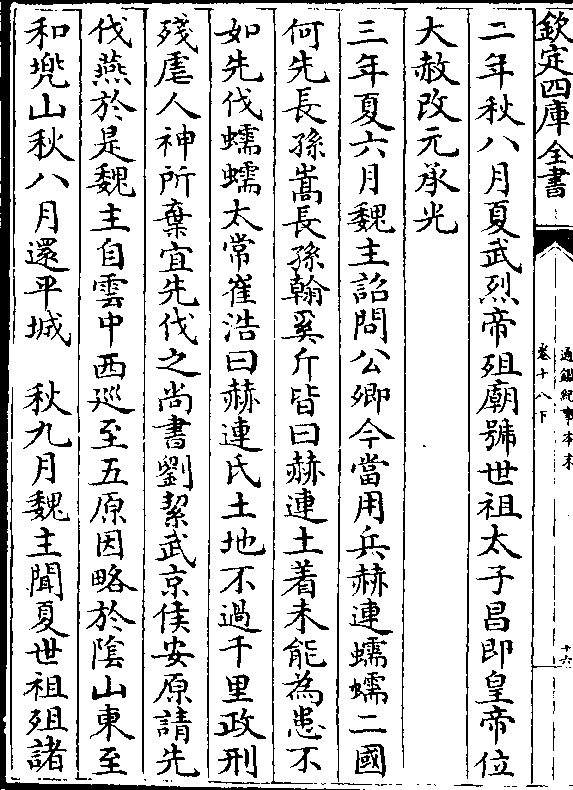 欽定四庫全書
通鑑紀事本末
卷十八下
十六
二年秋八月夏武烈帝殂廟號世祖太子昌即皇帝位
大赦改元承光
三年夏六月魏主詔問公卿今當用兵赫連蠕蠕二國
何先長孫嵩長孫翰奚斤皆曰赫連土着未能為患不
如先伐蠕蠕太常崔浩曰赫連氏土地不過千里政刑
殘虐人神所棄宜先伐之尚書劉絜武京侯安原請先
伐燕於是魏主自雲中西巡至五原因畋於陰山東至
和兜山秋八月還平城　秋九月魏主聞夏世祖殂諸